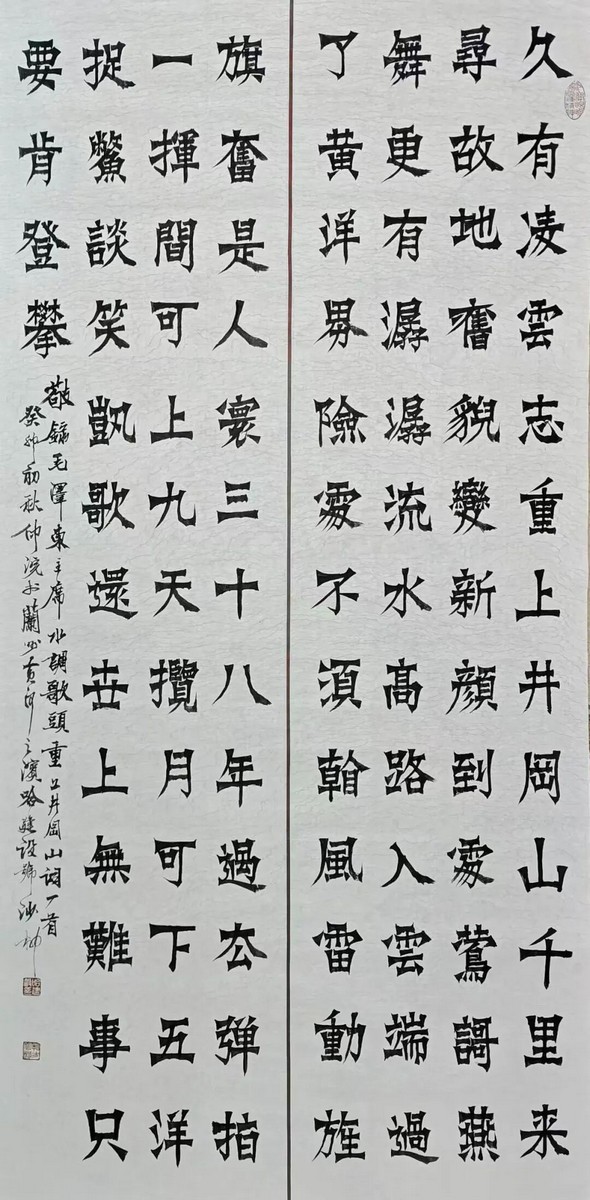 久有凌雲志重上井岡山千里来
尋故地舊貌變新顏到處鶯謌燕
舞更有潺潺流水高路入雲端過
了黄洋界險處不須看風雷動旌
旗奮是人寰三十八年過去彈指
一揮間可上九天攬月可下五洋
捉鱉談笑凱歌還世上無難事只
要肯登攀
敬錄毛澤東主席水調歌頭重上井岡山詞一首
癸卯初秋仲浣於蘭州黄河之濱